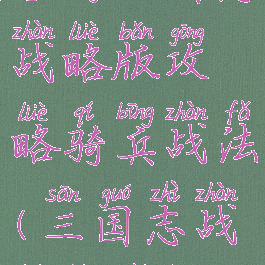 zhàn lüè bǎn gōng
战略版攻
lüè qí bīng zhàn fǎ
略骑兵战法
sān guó zhì zhàn
（三国志战